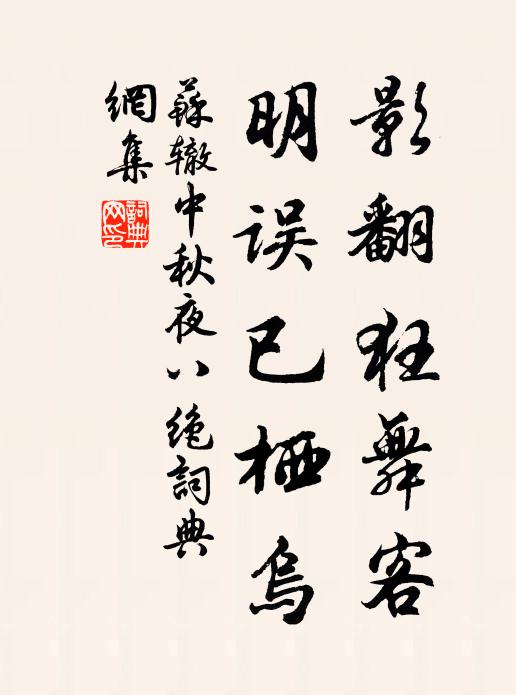 影翻狂舞客
明误已栖乌
蘇辙中秋夜八绝詞典
網集
詞典
网印